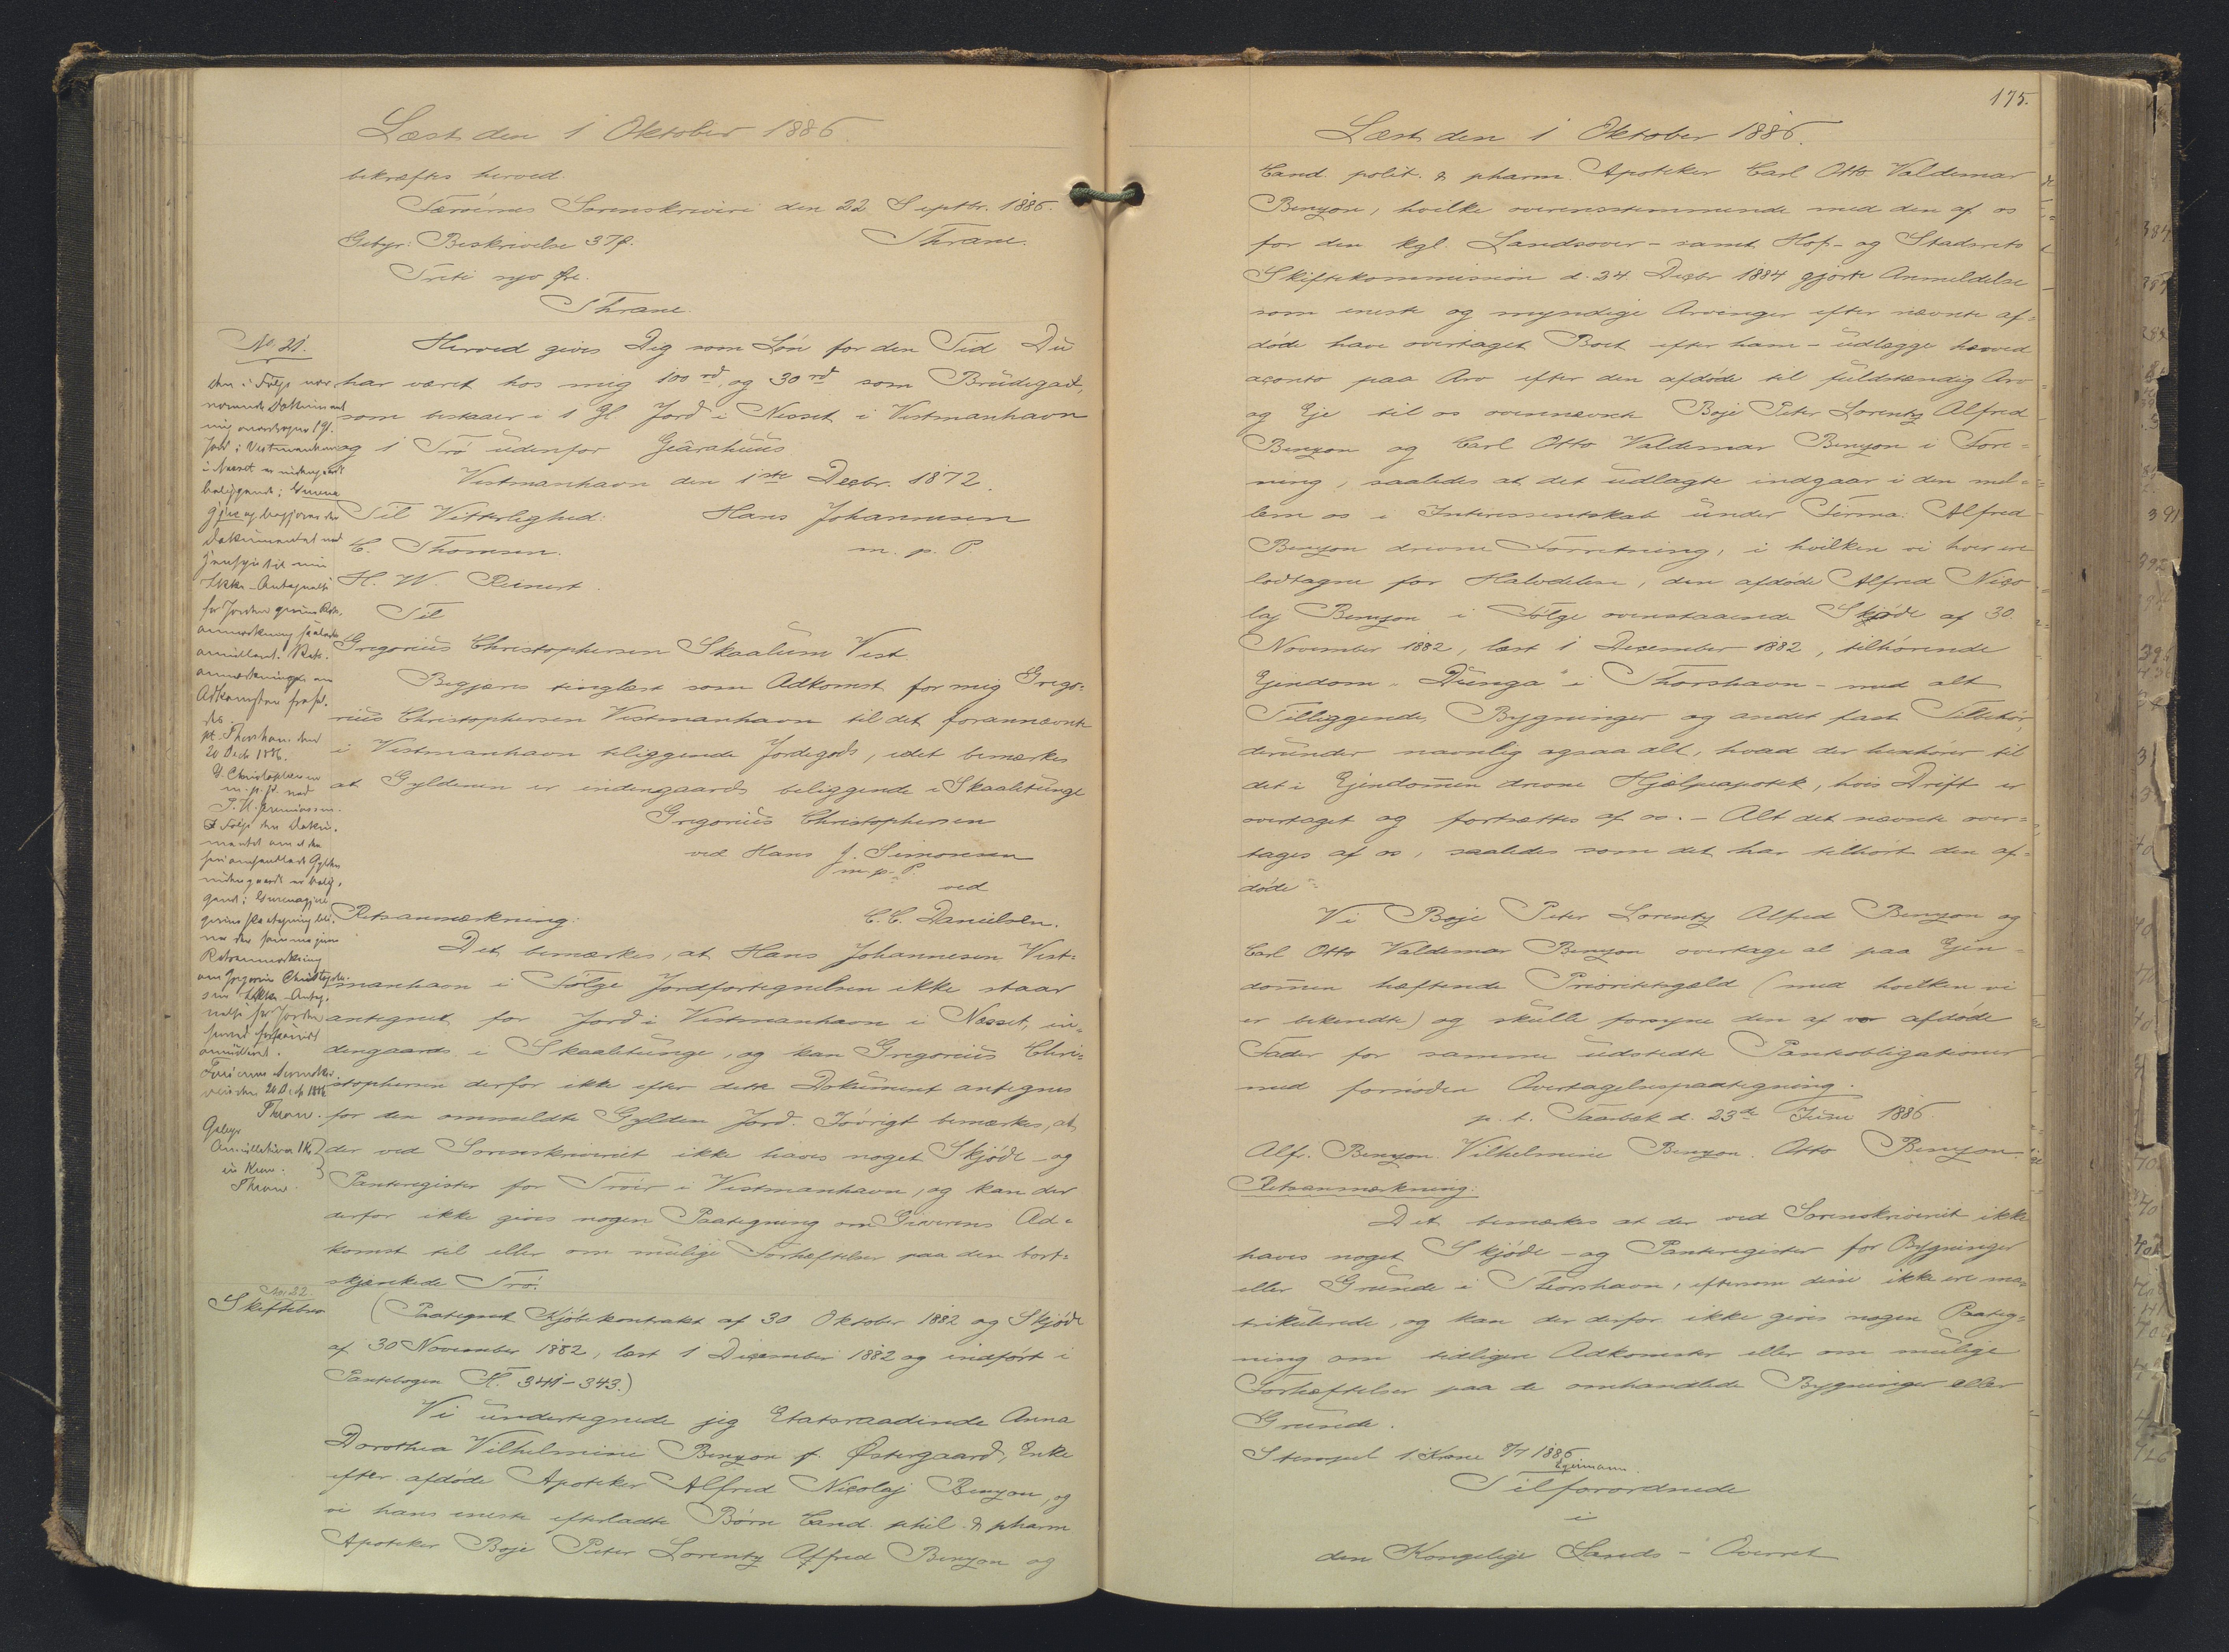 Læst den 1 Oktober 1886.
bekræftes herved.
Færøernes Sorenskriveri den 22 Septbr. 1886.
Gebyr: Beskrivelse 37ø. Thrane.
Treti syv Øre.
Thrane.
No 21.
Herved gives Dig som Løn for den Tid Du
har været hos mig 100 rd, og 30 rd som Brudegave,
som bestaaer i 1 Gl Jord i Nesset i Vestmanhavn
og 1 Trø udenfor Gearahuus.
Vestmanhavn den 1ste Decbr. 1872.
Til Vitterlighed: Hans Johannesen
C. Thomsen. m. p. P.
H. W. Reinert.
Til
Gregorius Christophersen Skaalum Vest.
Begjæres tinglæst som Adkomst for mig Grego-
rius Christophersen Vestmanhavn til det forannævnte
i Vestmanhavn beliggende Jordegods, idet bemærkes
at Gylden er indengaards beliggende i Skaaletunge
Gregorius Christophersen
ved Hans J. Simonsen
m. p. P.
ved
Retsanmærkning: C. C. Danielsen.
Det bemærkes, at Hans Johannesen Vest-
manhavn i Følge Jordfortegnelsen ikke staar
antegnet for Jord i Vestmanhavn i Nesset, in-
dengaards i Skaaletunge, og kan Gregorius Chri-
stophersen derfor ikke efter dette Dokument antegnes
for den ommeldte Gylden Jord. Iøvrigt bemærkes, at
der ved Sorenskriveriet ikke haves noget Skjøde- og
Panteregister for Trøer i Vestmanhavn, og kan der
derfor ikke gives nogen Paategning om Giverens Ad-
komst til eller om mulige Forhæftelser paa den bort-
skjænkede Trø.
No 22.
Skiftebrev
(Paategnet Kjøbekontrakt af 30 Oktober 1882 og Skjøde
af 30 November 1882, læst 1 December 1882 og indført i
Pantebogen H. 341-343.)
Vi undertegnede jeg Etatsraadinde Anna
Dorothea Vilhelmine Benzon f. Østergaard, Enke
efter afdøde Apoteker Alfred Nicolaj Benzon, og
vi hans eneste efterladte Børn Cand. phil. & pharm
Apoteker Boje Peter Lorentz Alfred Benzon og
Dokument
1 Gl.
Jord i Vestmanhavn
beliggende i
Dokumentet med
for Jorden
pt. Thorshavn den
20 Decb 1886.
G. Christophersen
m. p. P. ved
Retsanmærkning
Thrane.
Gebyr
en Krone.
Thrane.
175.
Læst den 1 Oktober 1886.
Cand. polit. & pharm. Apoteker Carl Otto Valdemar
Benzon, hvilke overensstemmende med den af os
for den kgl. Landsover- samt Hof- og Stadsrets
Skiftekommission d. 24. Decbr 1884 gjorte Anmeldelse
som eneste og myndige Arvinger efter nævnte af-
døde have overtaget Boet efter ham - udlægge herved
aconto paa Arv efter den afdøde til fuldstændig Arv
og Eje til os ovennævnte Boje Peter Lorentz Alfred
Benzon og Carl Otto Valdemar Benzon i Fore-
ning, saaledes at det udlagte indgaar i den mel-
lem os i Interessentskab under Firma Alfred
Benzon drevne Forretning, i hvilken vi hver ere
lodtagne for Halvdelen, den afdøde Alfred Nico
laj Benzon i Følge ovenstaaende Skjøde af 30
November 1882, læst 1 December 1882, tilhørende
Ejendom "Dunga" i Thorshavn - med alt
Tilliggende, Bygninger og andet fast Tilbehør,
derunder navnlig ogsaa alt, hvad der henhører til
det i Ejendommen drevne Hjælpeapotek, hvis Drift er
overtaget og fortsættes af os. - Alt det nævnte over-
tages af os, saaledes som det har tilhørt den af-
døde
Vi Boje Peter Lorentz Alfred Benzon og
Carl Otto Valdemar Benzon overtage al paa Ejen-
dommen hæftende Prioritetsgæld (med hvilken vi
er bekendte) og skulle forsyne den af vor afdøde
Fader for samme udstedte Panteobligationer
med fornøden Overtagelsespaategning.
p. t. Taarbæk d. 23de Juni 1886
Alfr. Benzon. Vilhelmine Benzon. Otto Benzon.
Retsanmærkning:
Det bemærkes at der ved Sorenskriveriet ikke
haves noget Skjøde- og Panteregister for Bygninger
eller Grunde i Thorshavn, eftersom disse ikke ere ma-
trikulerede, og kan der derfor ikke gives nogen Paateg-
ning om tidligere Adkomster eller om mulige
Forhæftelser paa de omhandlede Bygninger eller
Grunde.
Stempel 1 Krone 8/7 1886
Tilforordnede
i
den Kongelige Lands- Overret